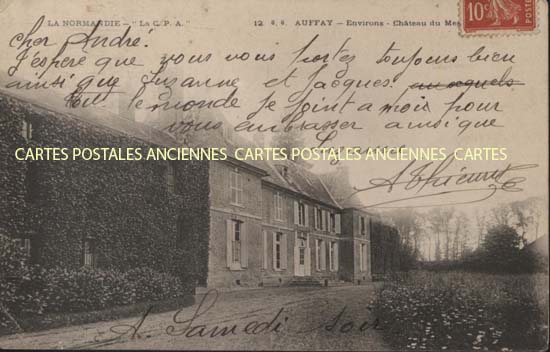 LA NORMANDIE - "La C. P. A."
12 AUFFAY - Environs - Château du Mes
10c
cher André.
J'espère que vous vous portez toujours bien
ainsi que Suzanne et Jacques. auxquels
Tout le monde se joint a moi pour
vous embrasser ainsi que
CARTES POSTALES ANCIENNES CARTES POSTALES ANCIENNES CARTES
A. Samedi soir